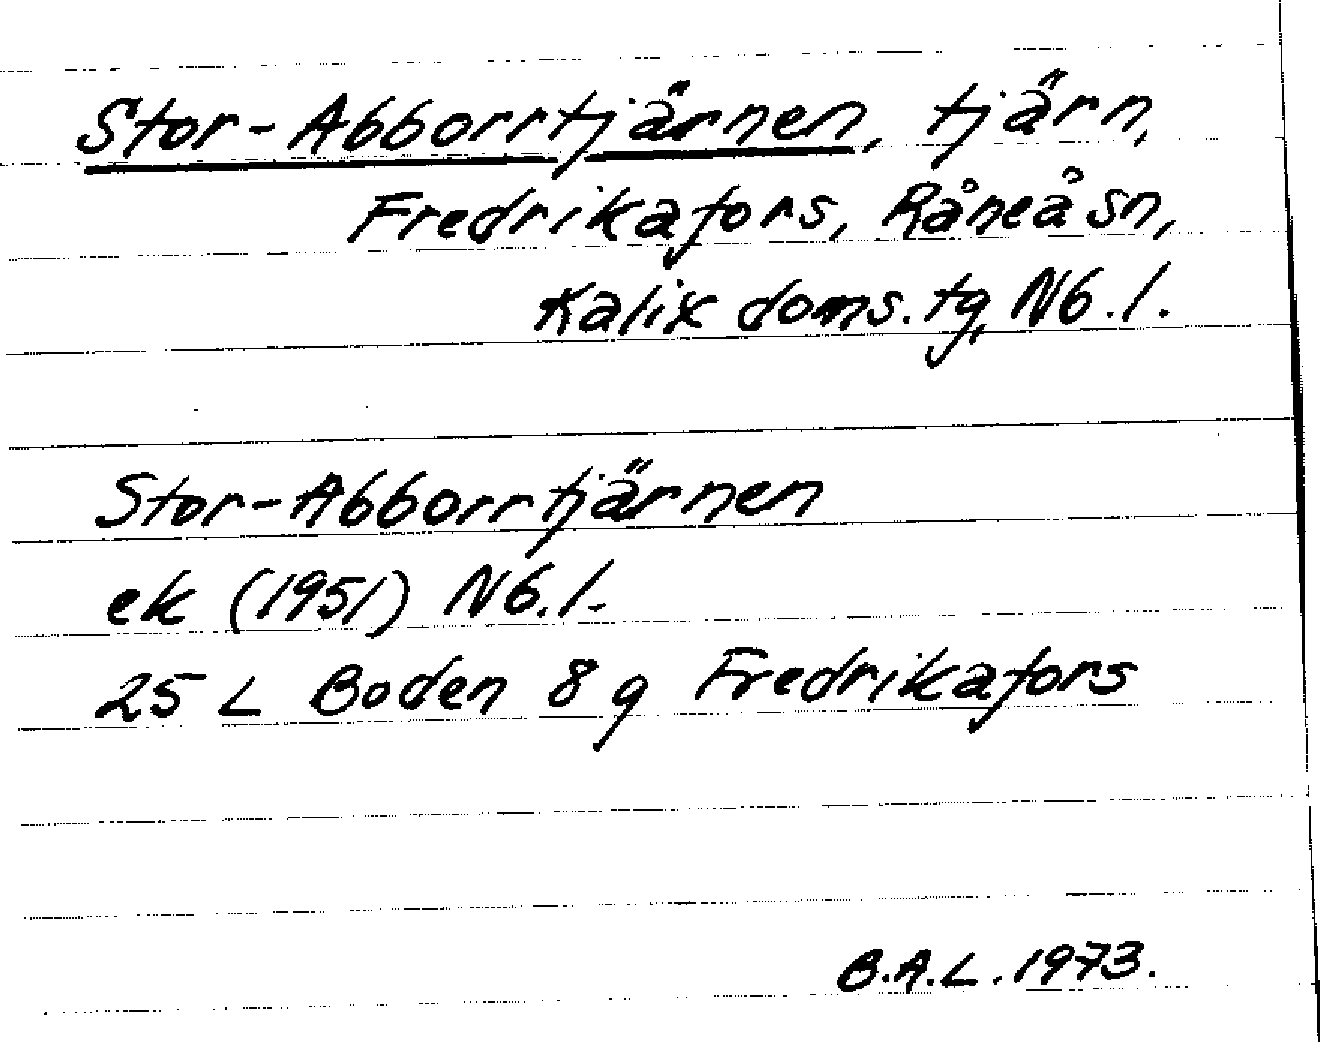 Stor-Abborrtjärnen, tjärn,
Fredrikafors, Råneå sn,
Kalix doms. tg, Nb. l.
Stor-Abborrtjärnen
ek (1951) Nb. l.
25 L Boden 8 g Fredrikafors
B.A.L. 1973.